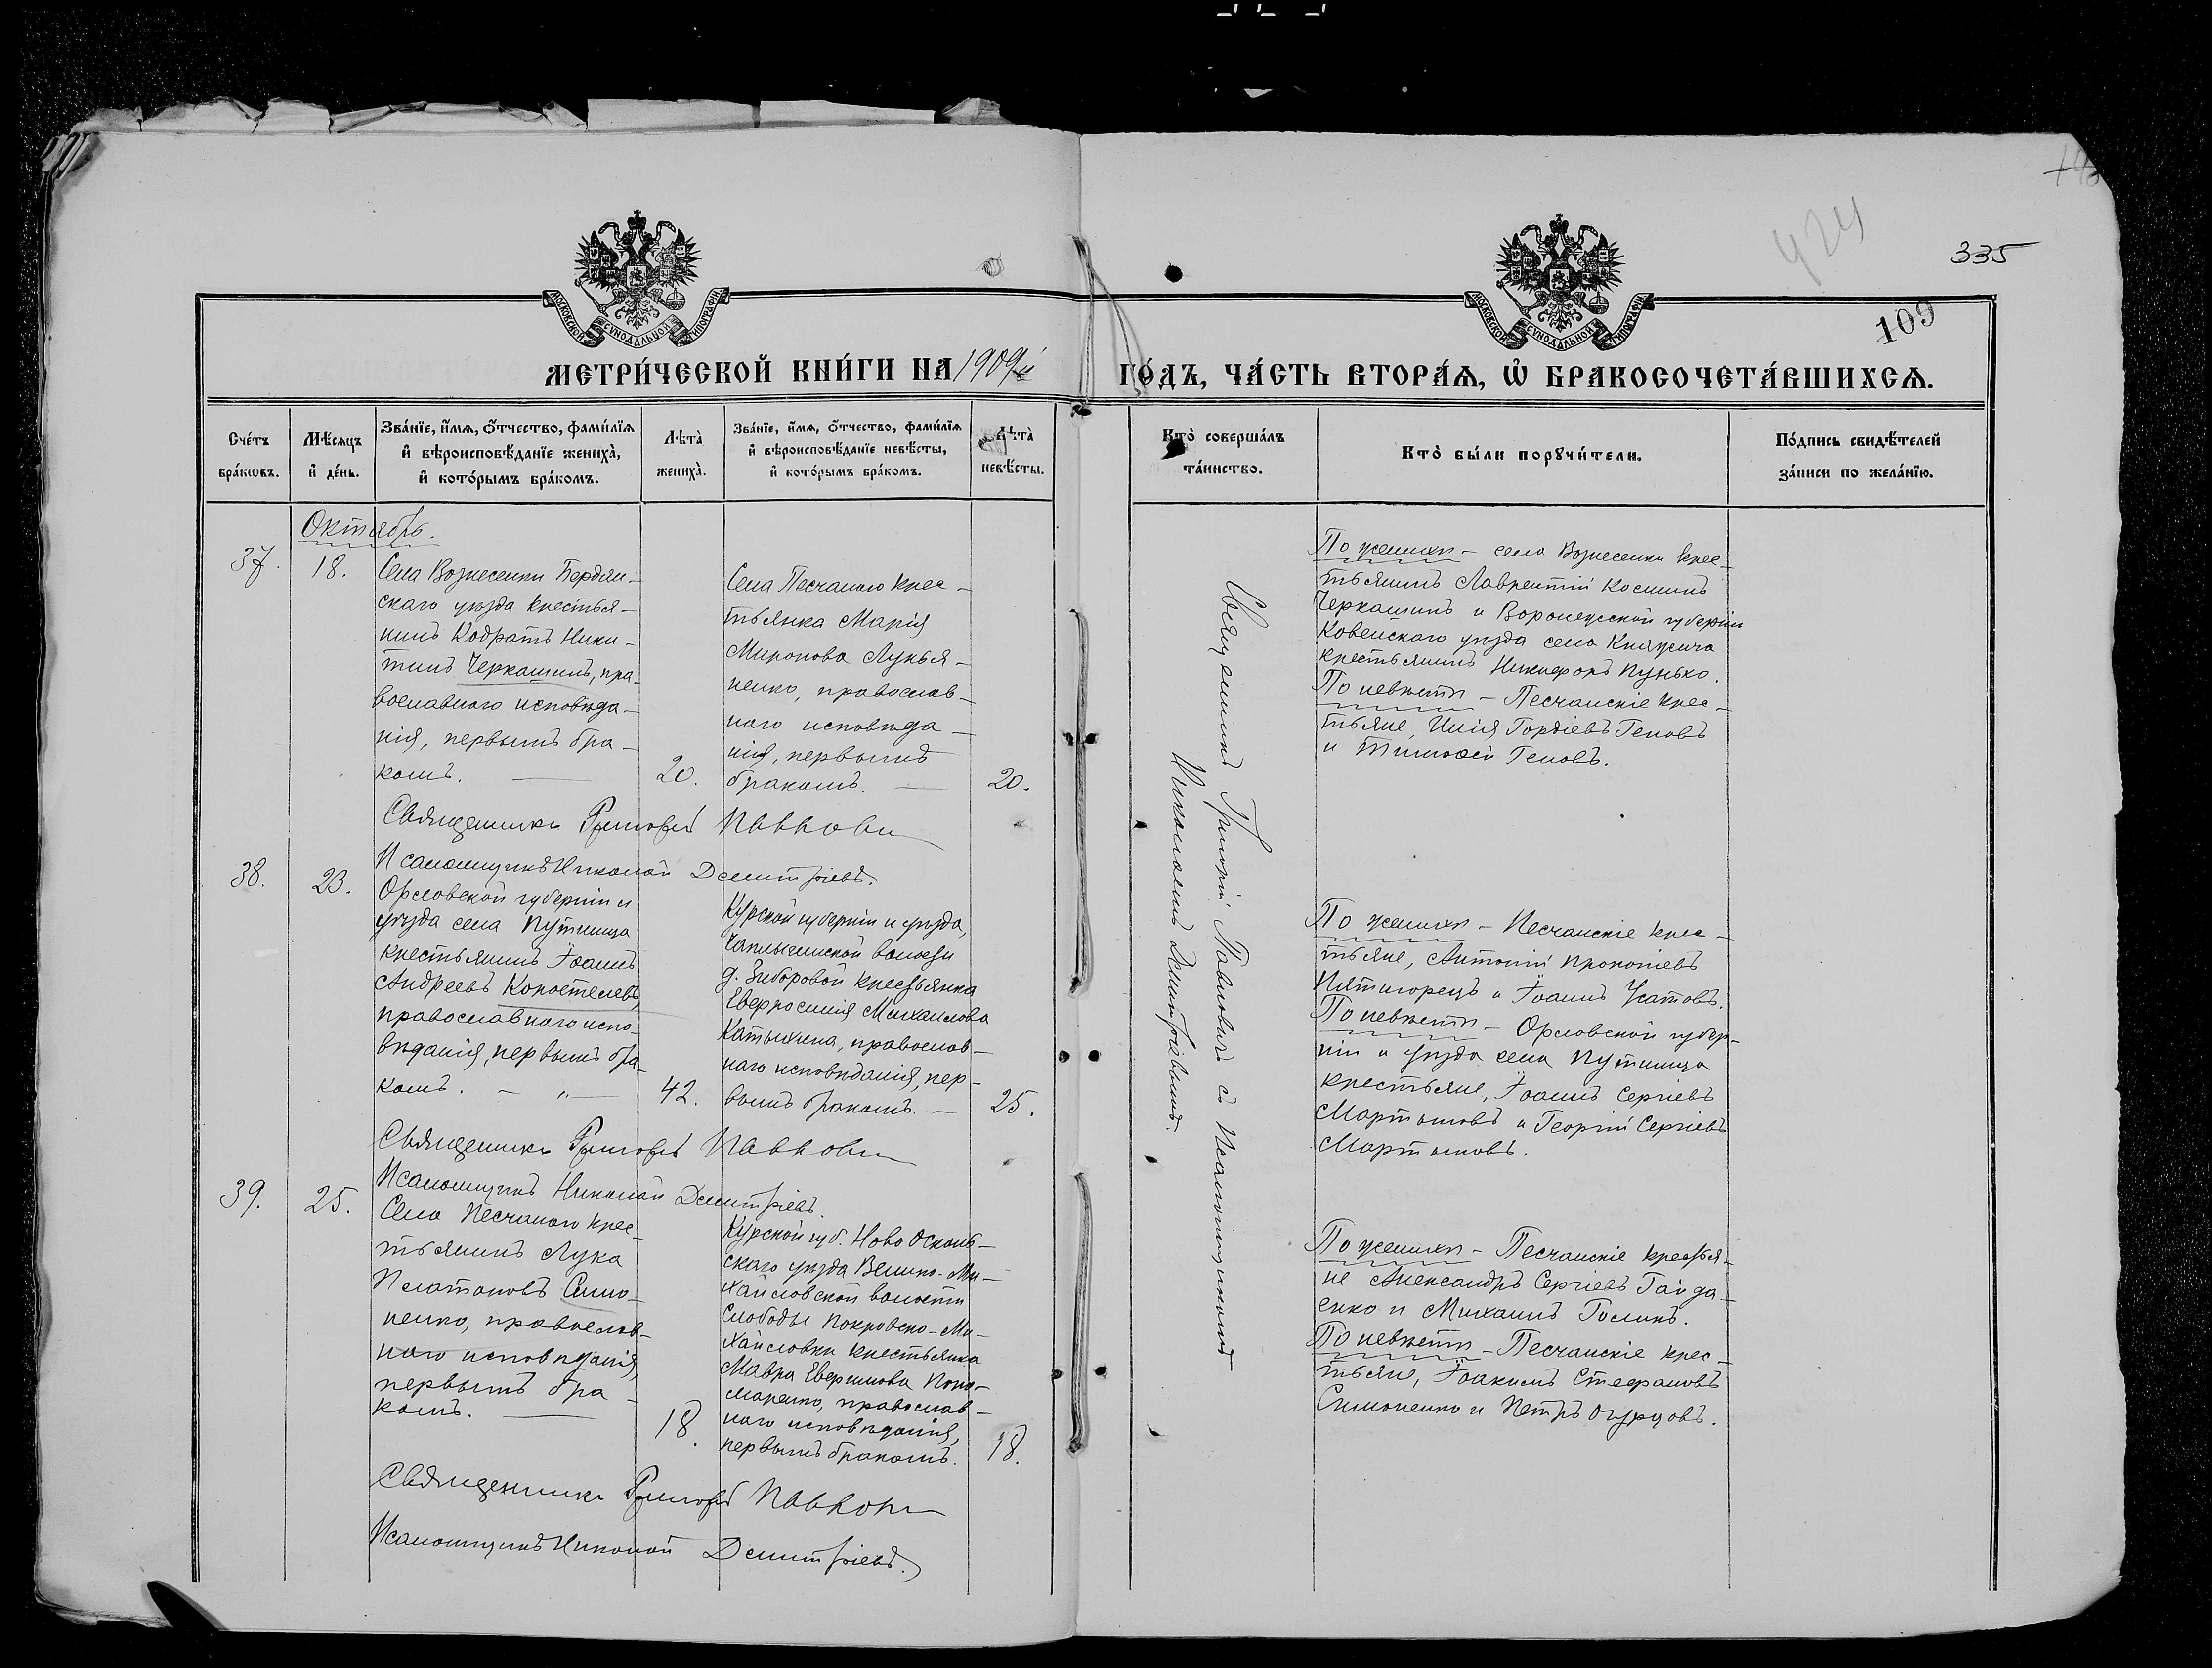 424
335
109
МОСКОВСКОЙ СѴНОДАЛЬНОЙ ТИПОГРАФІИ
МОСКОВСКОЙ СѴНОДАЛЬНОЙ ТИПОГРАФІИ
МЕТРИ́ЧЕСКОЙ КНИ́ГИ НА 1909й
ГО́ДЪ, ЧА́СТЬ ВТОРА́Ѧ, Ѽ БРАКОСОЧЕТА́ВШИХСѦ.
Сче́тъ
бра́кѡвъ.
Мѣ́сяцъ
и҆ де́нь.
Зва́нїе, и҆́мѧ, ѻ҆́тчество, фами́лїѧ
и҆ вѣроисповѣ́данїе жениха̀,
и҆ кото́рымъ бра́комъ.
Лѣ́та̀
жениха̀.
Зва́нїе, и҆́мѧ, ѻ҆́тчество, фами́лїѧ
и҆ вѣроисповѣ́данїе невѣ́сты,
и҆ кото́рымъ бра́комъ.
Лѣ́та̀
невѣ́сты.
Кто̀ соверша́лъ
та́инство.
Кто̀ бы́ли порꙋчи́тели.
По́дпись свидѣ́телей
за́писи по жела́нїю.
Октябрь.
37.
18.
Села Вознесенки Бердян-
скаго уѣзда крестья-
нинъ Кодратъ Ники-
тинъ Черкашинъ, пра-
вославнаго исповѣда-
нія, первымъ бра-
комъ.
20.
Села Песчанаго крес-
тьянка Марія
Миронова Лукья-
ненко, православ-
наго исповѣда-
нія, первымъ
бракомъ.
20.
Священникъ Григорій Павловичъ съ Псаломщикомъ
Николаемъ Димитріевымъ.
По женихѣ - села Вознесенки крес-
тьянинъ Лаврентій Косминъ
Черкашинъ и Воронежской губерніи
уѣзда села
крестьянинъ Никифоръ Пунько.
По невѣстѣ - Песчанскіе крес-
тьяне, Илія Гордіевъ Геновъ
и Тимофей Геновъ.
Священникъ Григорій
Псаломщикъ Николай Демитріевъ.
38.
23.
Орловской губерніи и
уѣзда села Путимца
крестьянинъ Іоаннъ
Андреевъ Коростелевъ,
православнаго испо-
вѣданія, первымъ бра-
комъ. - „ -
42.
Курской губерніи и уѣзда,
Чаплыгинской волости
д. Зиборовой крестьянка
Евфросинія Михаилова
Катыхина, православ-
наго исповѣданія, пер-
вымъ бракомъ. -
25.
По женихѣ - Песчанскіе крес-
тьяне, Антоній Прокопіевъ
Пятигорецъ и Іоаннъ Усатовъ.
По невѣстѣ - Орловской губер-
ніи и уѣзда села Путимца
крестьяне, Іоаннъ Сергіевъ
Мартыновъ и Георгій Сергіевъ
Мартыновъ.
Священникъ Григорій
Псаломщикъ Николай Демитріевъ.
39.
25.
Села Песчанаго крес-
тьянинъ Лука
Платоновъ Симо-
ненко, православ-
наго исповѣданія,
первымъ бра-
комъ.
18.
Курской губ. Ново Осколь-
скаго уѣзда Велико-Ми-
хайловской волости
Слободы Покровско-Ми-
хайловки крестьянка
Мавра Поно-
маренко, православ-
наго исповѣданія,
первымъ бракомъ.
18.
По женихѣ - Песчанскіе крестья-
не Александръ Сергіевъ Гайда-
енко и Михаилъ Голикъ.
По невѣстѣ - Песчанскіе крес-
тьяне, Іоакимъ Стефановъ
Симоненко и Петръ Огурцовъ.
Священникъ Григорій
Псаломщикъ Николай Демитріевъ.